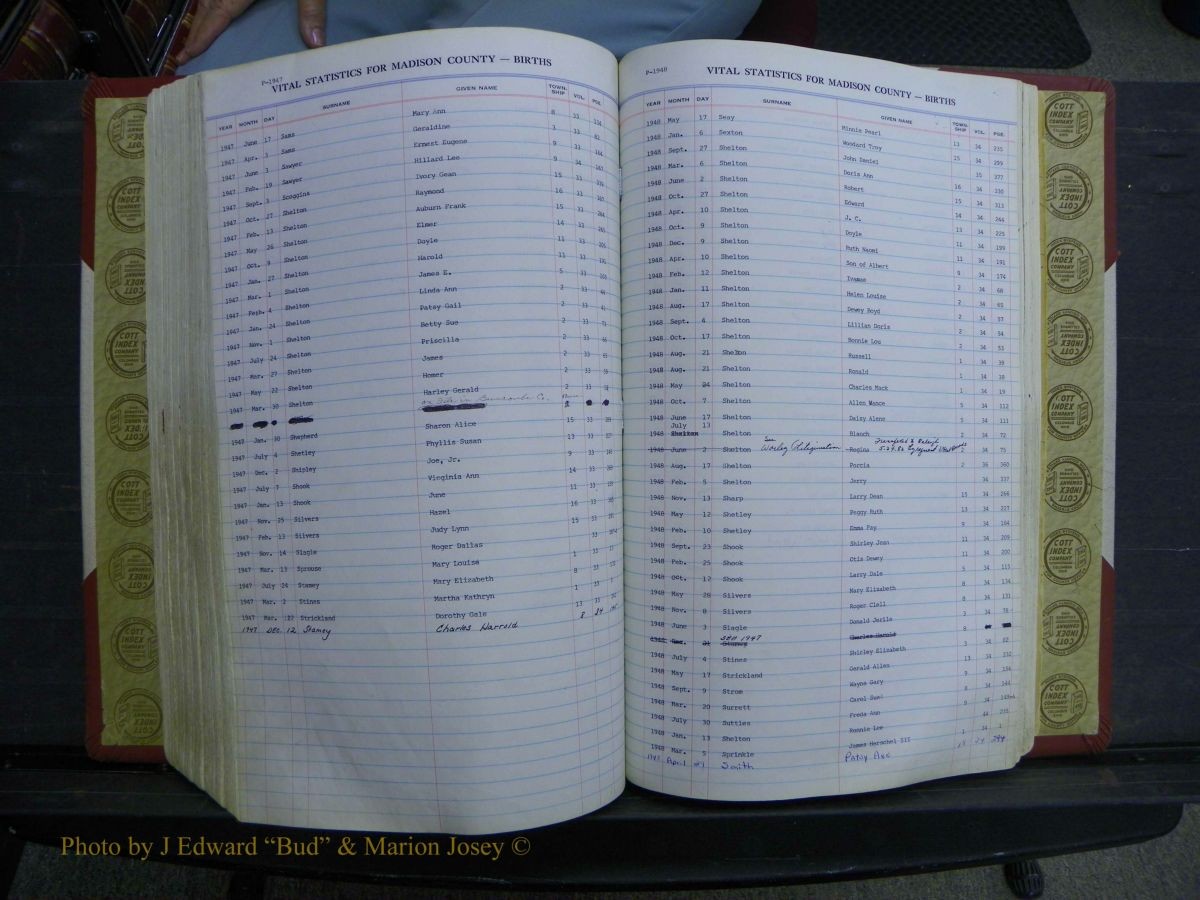 P-1947
VITAL STATISTICS FOR MADISON COUNTY — BIRTHS
YEAR MONTH DAY SURNAME GIVEN NAME TOWN-SHIP VOL. PGE.
1947 June 17 Sams Mary Ann 8 33
1947 Apr. 3 Sams Geraldine 3 33
1947 June 3 Sawyer Ernest Eugene 9 33
1947 Feb. 19 Sawyer Hillard Lee 9 34
1947 Sept. 3 Scoggins Ivory Gean 15 33
1947 Oct. 27 Shelton Raymond 16 33
1947 Feb. 13 Shelton Auburn Frank 15 33
1947 May 26 Shelton Elmer 14 33
1947 Oct. 9 Shelton Doyle 11 33
1947 Jan. 27 Shelton Harold 11 33
1947 Mar. 1 Shelton James E. 5 33
1947 Feb. 4 Shelton Linda Ann 2 33
1947 Jan. 24 Shelton Patsy Gail 2 33
1947 Nov. 1 Shelton Betty Sue 2 33
1947 July 24 Shelton Priscilla 2 33
1947 Mar. 27 Shelton James 2 33
1947 May 22 Shelton Homer 2 33
1947 Mar. 30 Shelton Harley Gerald 2 33
on file in Buncombe Co.
1947 Jan. 30 Shepherd Sharon Alice 15 33
1947 July 4 Shetley Phyllis Susan 13 33
1947 Dec. 2 Shipley Joe, Jr. 9 33
1947 July 7 Shook Virginia Ann 14 33
1947 Jan. 13 Shook June 11 33
1947 Nov. 25 Silvers Hazel 16 33
1947 Feb. 13 Silvers Judy Lynn 15 33
1947 Nov. 14 Slagle Roger Dallas 33
1947 Mar. 13 Sprouse Mary Louise 1 33
1947 July 24 Stamey Mary Elizabeth 8 33
1947 Mar. 2 Stines Martha Kathryn 1 33
1947 Mar. 22 Strickland Dorothy Gale 13 33
1947 Dec. 12 Stamey Charles Harrold 8 34
P-1948
VITAL STATISTICS FOR MADISON COUNTY — BIRTHS
YEAR MONTH DAY SURNAME GIVEN NAME TOWN-SHIP VOL. PGE.
1948 May 17 Seay Minnie Pearl 13 34 235
1948 Jan. 6 Sexton Woodard Troy 15 34 299
1948 Sept. 27 Shelton John Daniel 35 377
1948 Mar. 6 Shelton Doris Ann 16 34 330
1948 June 2 Shelton Robert 15 34 313
1948 Oct. 27 Shelton Edward 14 34 244
1948 Apr. 10 Shelton J. C. 13 34 225
1948 Oct. 9 Shelton Doyle 11 34 199
1948 Dec. 9 Shelton Ruth Naomi 11 34 191
1948 Apr. 10 Shelton Son of Albert 9 34 174
1948 Feb. 12 Shelton Ivamae 2 34 68
1948 Jan. 11 Shelton Helen Louise 2 34 65
1948 Aug. 17 Shelton Dewey Boyd 2 34 57
1948 Sept. 4 Shelton Lillian Doris 2 34 54
1948 Oct. 17 Shelton Bonnie Lou 2 34 53
1948 Aug. 21 Shelton Russell 1 34 39
1948 Aug. 21 Shelton Ronald 1 34 38
1948 May 24 Shelton Charles Mack 1 34 19
1948 Oct. 7 Shelton Allen Wance 5 34 112
1948 June 17 Shelton Daisy Alene 5 34 111
1948 Shelton July 13 Shelton Blanch 2 34 72
1948 June 2 Shelton See Worley (Legitimation) Regina 2 34 75
1948 Aug. 17 Shelton Porcia 2 36 360
1948 Feb. 5 Shelton Jerry 34 337
1948 Nov. 13 Sharp Larry Dean 15 34 266
1948 May 12 Shetley Peggy Ruth 13 34 227
1948 Feb. 10 Shetley Emma Fay 9 34 164
1948 Sept. 23 Shook Shirley Jean 11 34 209
1948 Feb. 25 Shook Otis Dewey 11 34 200
1948 Oct. 12 Shook Larry Dale 5 34 115
1948 May 28 Silvers Mary Elizabeth 8 34 134
1948 Nov. 8 Silvers Roger Clell 8 34 131
1948 June 3 Slagle Donald Jerile 3 34
1948 Dec. 21 Stamey SEE 1947 Charles Harold 8
1948 July 4 Stines Shirley Elizabeth 3 34 82
1948 May 17 Strickland Gerald Allen 13 34 232
1948 Sept. 9 Strom Wayne Gary 9 34 156
1948 Mar. 20 Surrett Carol Sumi 8 34 144
1948 July 30 Suttles Freda Ann 9 34
1948 Jan. 13 Shelton Ronnie Lee 44 235
1948 Mar. 5 Sprinkle James Herschel III 1 34
April Smith Patsy 15 34 294
COTT INDEX COMPANY COLUMBUS OHIO
Photo by J Edward “Bud” & Marion Josey ©